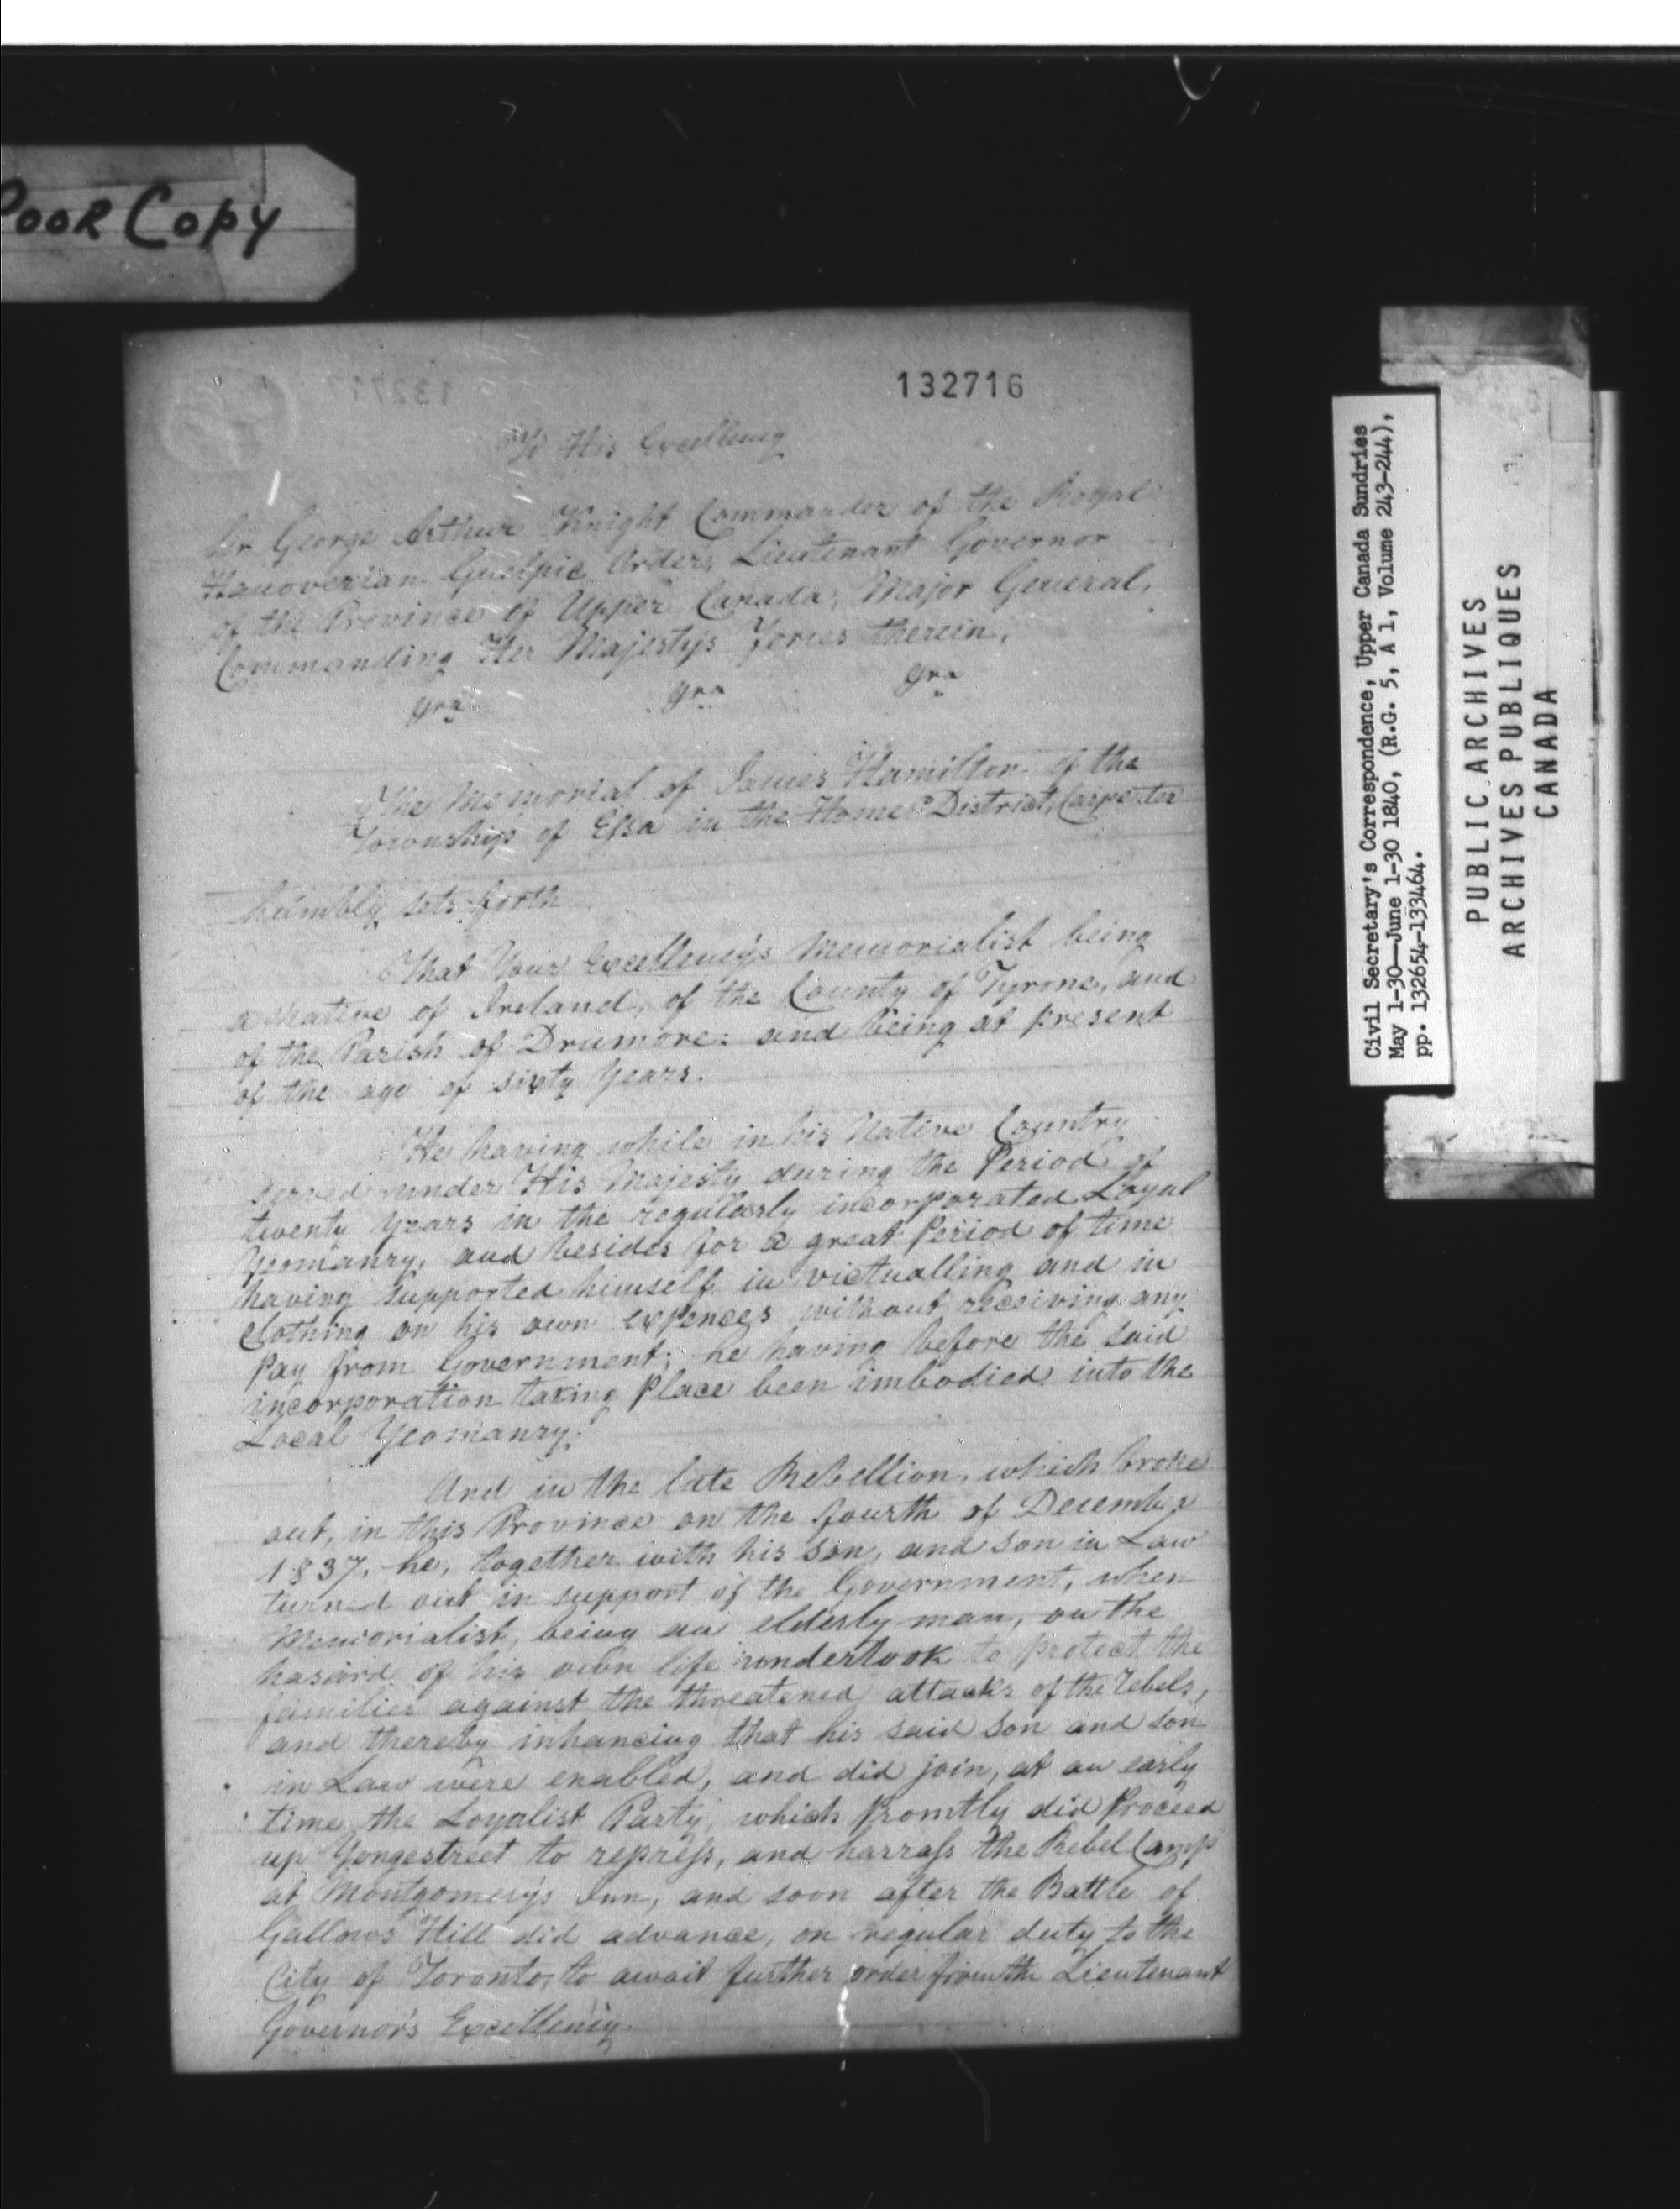 Poor Copy
132716
To His Excellency
Sir George Arthur Knight Commander of the Royal
Hanoverian Guelpic Order, Lieutenant Governor
of the Province of Upper Canada, Major General,
Commanding Her Majesty's Forces therein,
The Memorial of James Hamilton of the
Township of Essa in the Home District, Carpenter
humbly sets forth
That Your Excellency's Memorialist being
a native of Ireland, of the County of Tyrone, and
of the Parish of Drumore: and being at present
of the age of sixty Years.
He having while in his Native Country
served under His Majesty during the Period of
twenty Years in the regularly incorporated Loyal
Yeomanry, and besides for a great Period of time
having supported himself in victualling and in
clothing on his own expences without receiving any
Pay from Government; he having before the said
incorporation taking Place been imbodied into the
Local Yeomanry.
And in the late Rebellion, which broke
out, in this Province on the fourth of December
1837, he, together with his son, and son in Law
turned out in support of the Government, when
Memorialist, being an elderly man, on the
hasard of his own life undertook to protect the
families against the threatened attacks of the rebels,
and thereby inhancing that his said son and son
in Law were enabled, and did join, at an early
time the Loyalist Party, which promtly did Proceed
up Yongestreet to repress, and harrass the Rebel Camp
at Montgomery's Inn, and soon after the Battle of
Gallows Hill did advance, on regular duty to the
City of Toronto, to await further order from the Lieutenant
Governor's Excellency.
Civil Secretary's Correspondence, Upper Canada Sundries
May 1-30—June 1-30 1840, (R.G. 5, A 1, Volume 243-244),
pp. 132654-133464.
PUBLIC ARCHIVES
ARCHIVES PUBLIQUES
CANADA